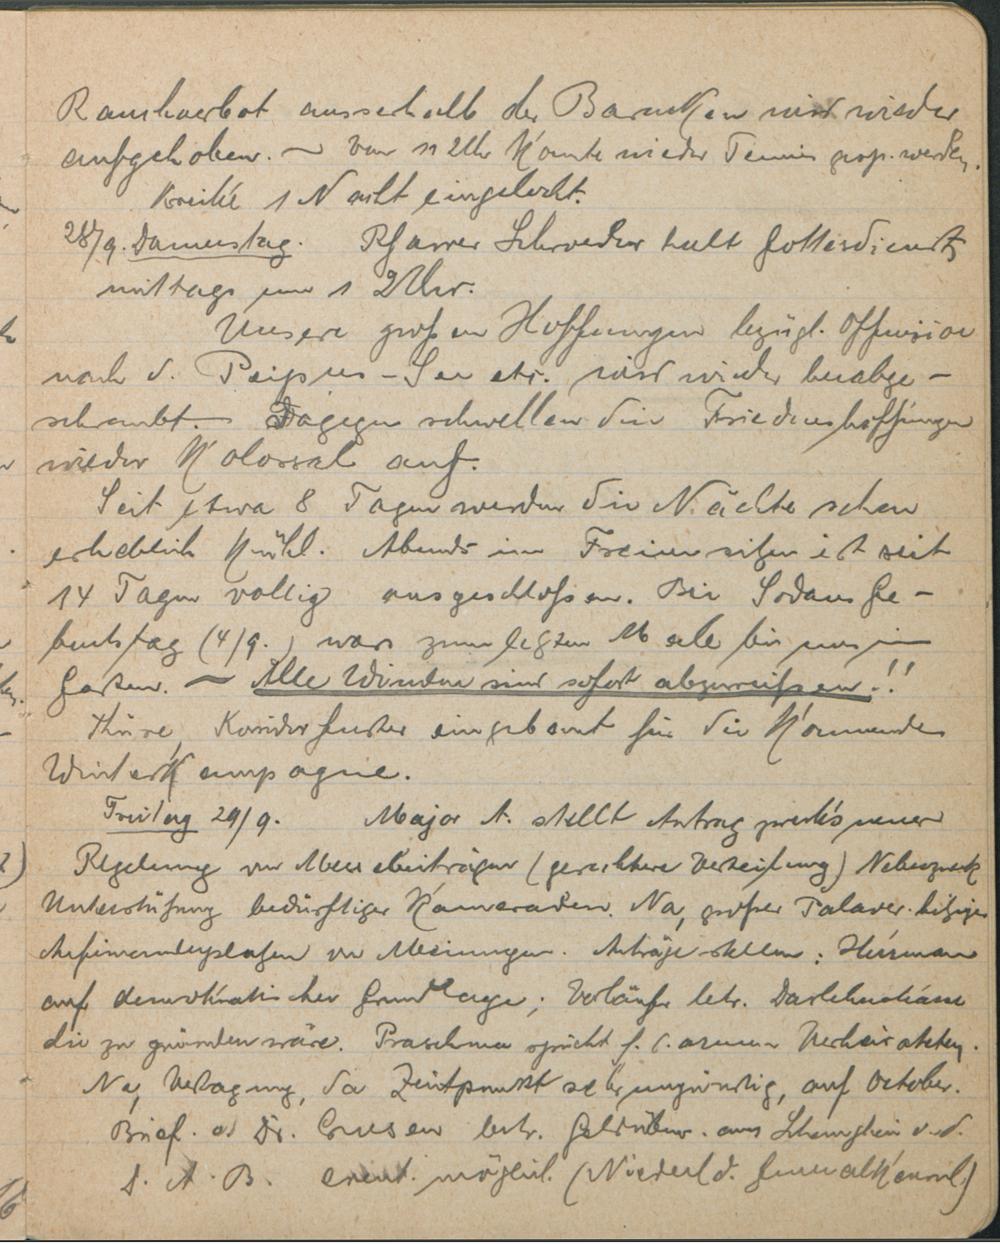 Rauchverbot ausserhalb der Baracken wird wieder
aufgehoben. — Von 11 2 Uhr konnte wieder Tennis gesp. werden.
1 Nacht eingelocht.
28/9. Donnerstag. Pfarrer Schroeder hält Gottesdienst
mittags um 1 2 Uhr.
Unsere großen Hoffnungen bezügl. Offensive
nach d. Peipus-See etc. wird wieder herabge-
schraubt. Dagegen schwellen die Friedenshoffnungen
wieder Kolossal auf.
Seit etwa 8 Tagen werden die Nächte schon
erheblich Kühl. Abends im Freien sitzen ist seit
14 Tagen völlig ausgeschloßen. Bei Sodans Ge-
burtstag (4/9.) wars zum letzten Male bei uns im
Garten. — Alle Winden sind sofort abzureißen!!
Thüre, Korridorfenster eingebaut für die Kommende
WinterKampagne.
Freitag 29/9. Major A. stellt Antrag zwecks neuer
Regelung von Messebeiträgen (gerechtere Verteilung) Nebenzweck
Unterstützung bedürftiger Kameraden. Na, großer Palaver. hitziges
Aufeinanderplatzen von Meinungen. Anträge stellen:
auf demokratischer Grundlage; betr. Darlehnskasse
die zu gründen wäre. Praschma spricht f. d. armen Verheirateten.
Na, Vertagung, da Zeitpunkt sehr ungünstig, auf October.
Brief a Dr. Crusen betr. Geldüberw. aus v. d.
D. A. B. event. möglich. (Niederld. GeneralKonsul.)